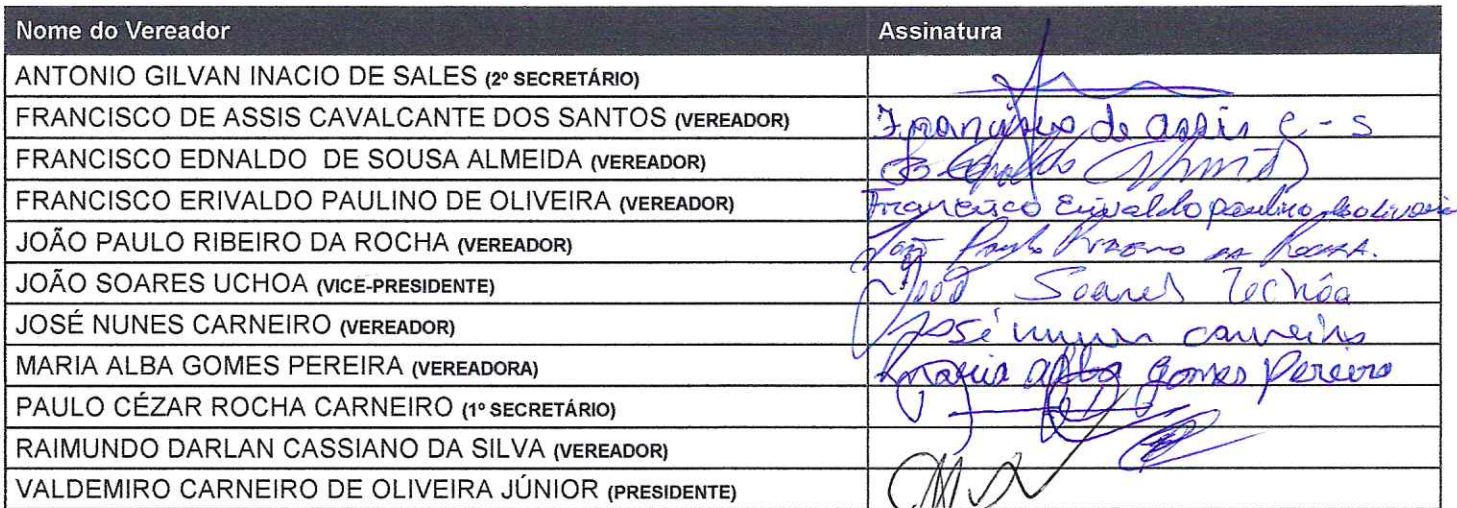 Nome do Vereador Assinatura
ANTONIO GILVAN INACIO DE SALES (2º SECRETÁRIO)
FRANCISCO DE ASSIS CAVALCANTE DOS SANTOS (VEREADOR) Francisco de assis c - s
FRANCISCO EDNALDO DE SOUSA ALMEIDA (VEREADOR)
FRANCISCO ERIVALDO PAULINO DE OLIVEIRA (VEREADOR) Francisco Erivaldo paulino de oliveira
JOÃO PAULO RIBEIRO DA ROCHA (VEREADOR) João Paulo Ribeiro da Rocha.
JOÃO SOARES UCHOA (VICE-PRESIDENTE) João Soares Uchôa
JOSÉ NUNES CARNEIRO (VEREADOR) José nunes carneiro
MARIA ALBA GOMES PEREIRA (VEREADORA) maria alba gomes Pereira
PAULO CÉZAR ROCHA CARNEIRO (1º SECRETÁRIO)
RAIMUNDO DARLAN CASSIANO DA SILVA (VEREADOR)
VALDEMIRO CARNEIRO DE OLIVEIRA JÚNIOR (PRESIDENTE)